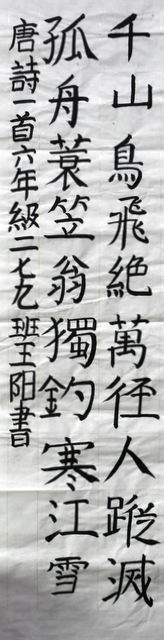 千山鳥飛絶萬徑人蹤滅
孤舟蓑笠翁獨釣寒江雪
唐詩一首六年級二七九班王阳書